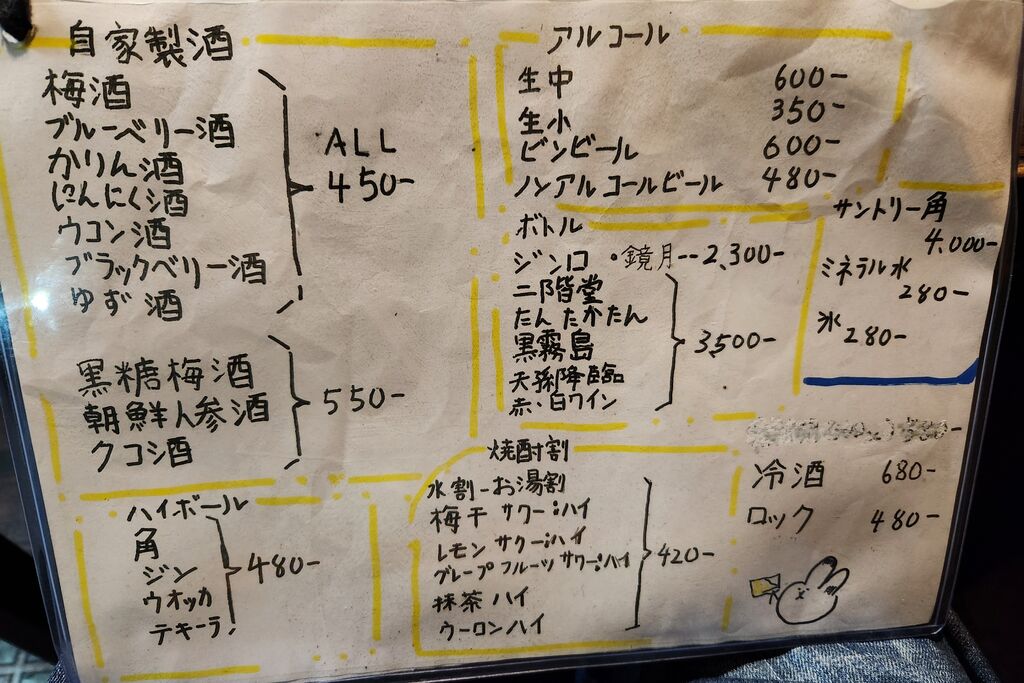 自家製酒
梅酒
ブルーベリー酒
かりん酒
にんにく酒
ウコン酒
ブラックベリー酒
ゆず酒
ALL
450-
黒糖梅酒
朝鮮人参酒
クコシ酒
550-
ハイボール
角
ジン
ウオッカ
テキーラ
480-
アルコール
生中 600-
生小 350-
ビンビール 600-
ノンアルコールビール 480-
ボトル
ジンロ・鏡月--2,300-
二階堂
たんたかたん
黒霧島
天孫降臨
赤、白ワイン
3,500-
サントリー角
4,000-
ミネラル水
280-
氷 280-
焼酎割
水割-お湯割
梅干サワー:ハイ
レモンサワー:ハイ
グレープフルーツサワー:ハイ
抹茶ハイ
ウーロンハイ
420-
冷酒 680-
ロック 480-